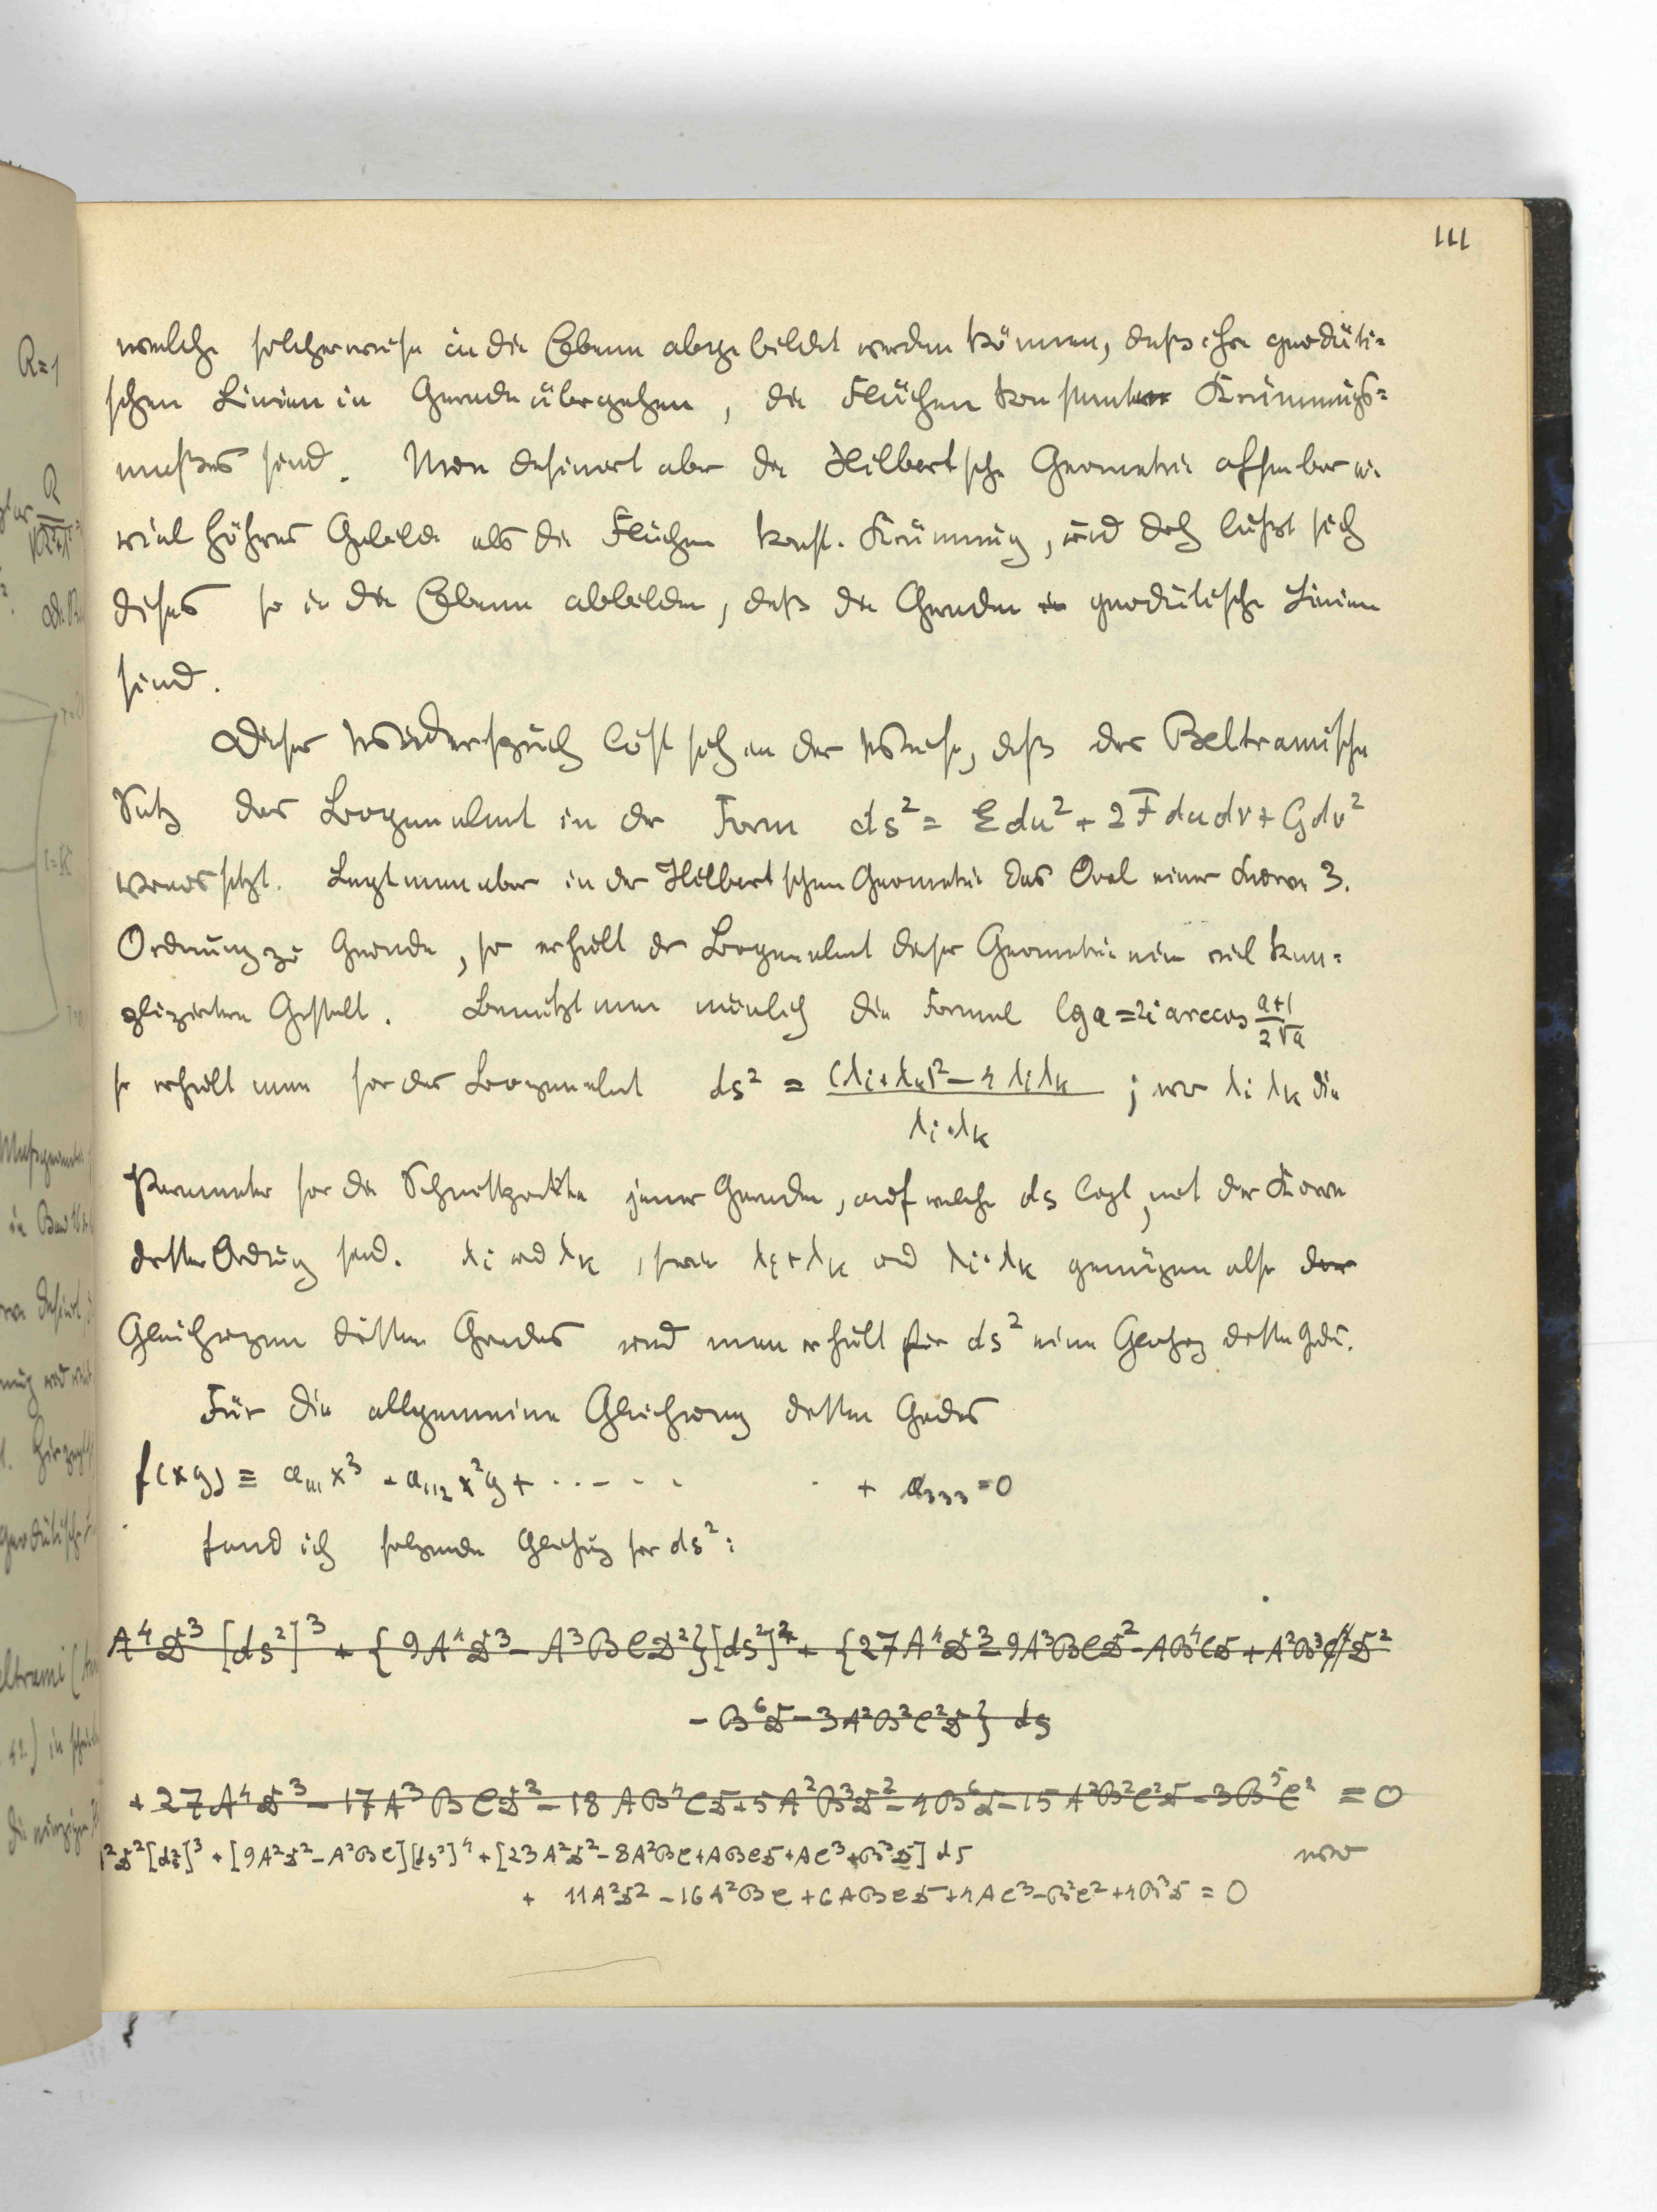 111
welche solcherweise in die Ebene abgebildet werden können, daß ihre geodäti=
schen Linien in Gerade übergehen, die Flächen konstanten Krümmungs=
maßes sind. Nun definiert aber die Hilbertsche Geometrie offenbar ein
viel höheres Gebilde als die Flächen konst. Krümmung, und doch läßt sich
dieses so in die Ebene abbilden, daß die Geraden geodätische Linien
sind.
Dieser Widerspruch löst sich in der Weise, daß der Beltramische
Satz das Bogenelement in der Form ds² = Edu² + 2Fdudv + Gdv²
voraussetzt. Legt man aber in der Hilbertschen Geometrie das Oval einer Kurve 3.
Ordnung zu Grunde, so erhält das Bogenelement dieser Geometrie eine viel kom=
plizirtere Gestalt. Benützt man nämlich die Formel lg a = 2i arccos (a+1)/(2√a)
so erhält man für das Bogenelement ds² = ((λi+λk)² − 4 λiλk)/(λi·λk) ; wo λi λk die
Parameter für die Schnittpunkte jener Geraden, auf welche ds liegt, mit der Kurve
dritter Ordnung sind. λi und λk, sowie λi+λk und λi·λk genügen also der
Gleichungen dritten Grades und man erhält für ds² eine Gleichung dritten Grades.
Für die allgemeine Gleichung dritten Grades
f(xy) ≡ a₁₁₁x³ + a₁₁₂x²y + ....... + a₃₃₃ = 0
fand ich folgende Gleichung für ds²:
A⁴D³ [ds²]³ + {9A⁴D³ − A³BCD²}[ds²]² + {27A⁴D³ − 9A³BCD² − AB⁴CD + A²B³D²
− B⁶D − 3A²B²C²D} ds
+ 27A⁴D³ − 17A³BCD² − 18AB⁴CD + 5A²B³D² − 4B⁶D − 15A²B²C²D − 3B⁵C² = 0
²D²[ds²]³ + [9A²D² − A²BC][ds²]⁴ + [23A²D² − 8A²BC + ABCD + AC³ + B³D] ds wo
+ 11A²D² − 16A²BC + 6ABCD + 4AC³ − B²C² + 4B³D = 0